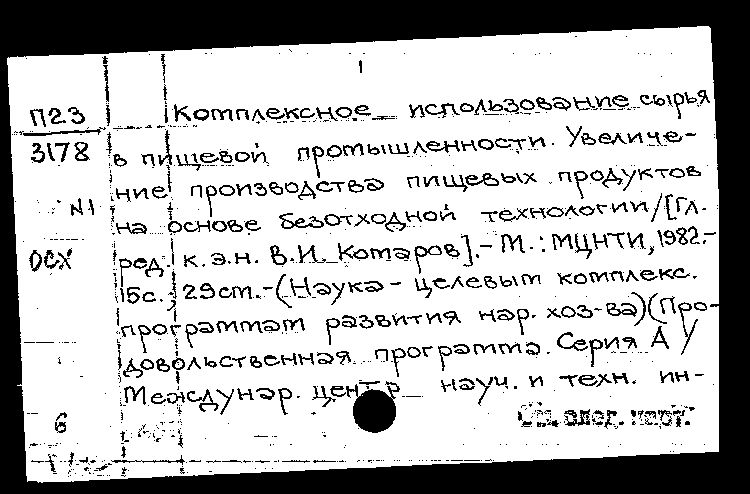 П23
3178
N1
ОСХ
6
Комплексное использование сырья
в пищевой промышленности. Увеличе-
ние производства пищевых продуктов
на основе безотходной технологии/[Гл.
ред. к.э.н. В.И. Комаров].- М.: МЦНТИ, 1982.-
15с.; 29см.-(Наука - целевым комплекс.
программам развития нар. хоз-ва)(Про-
довольственная программа. Серия А /
Междунар. центр науч. и техн. ин-
См. след. карт.